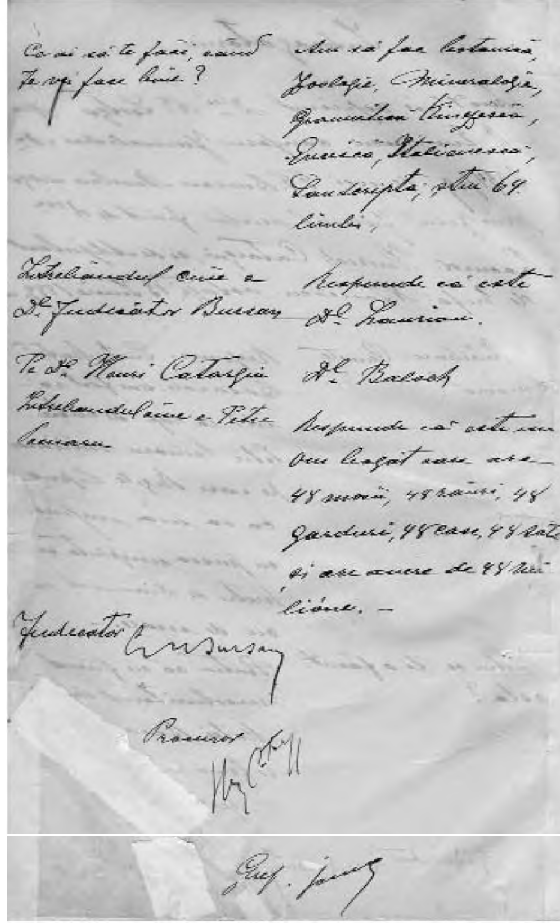 Ce ai să te faci, când
te vei face bine?
Am să fac botanică,
Zoologie, Mineralogie,
Gramatică
Italienească,
știu 64
limbi.
Întrebându-l cine e
Dl. Judecător Bursan
Respunde că este
Dl. Laurian.
Pe Dl. Henri Catargiu
Dl. Balosh
Întrebându-l cine e Petre
Respunde că este un
Om bogat care are
48 moșii, 48 râuri, 48
garduri, 48 case, 48 sate
și are avere de 48 mi-
lióne. —
Judecător Bursan
Procuror
Gref.